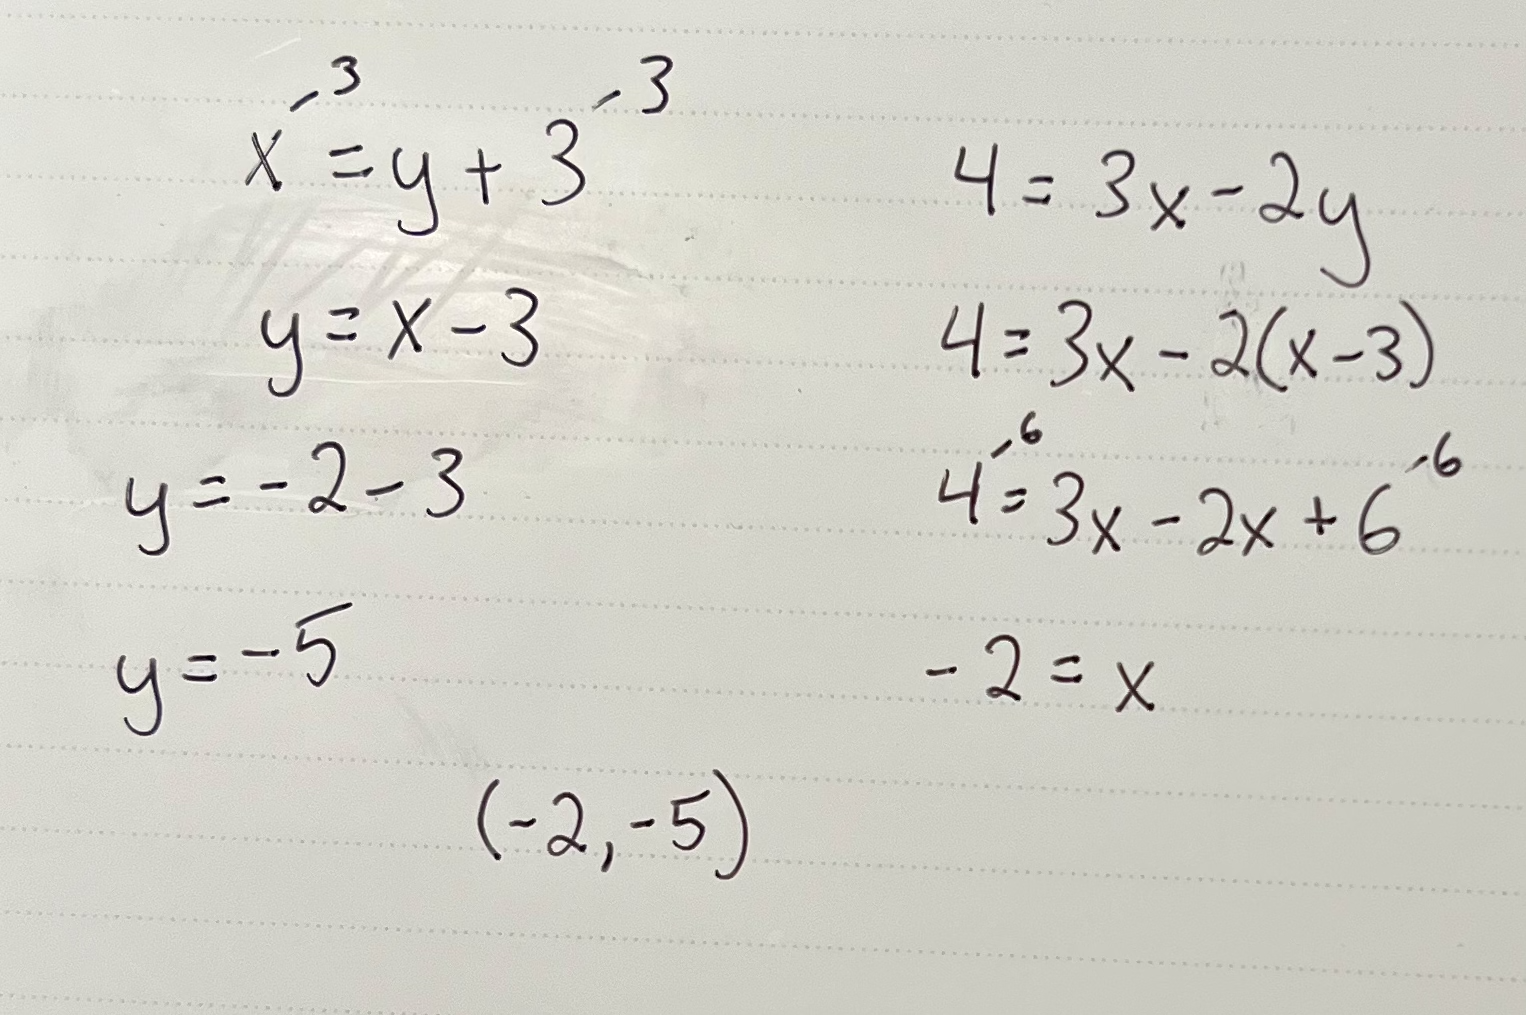 x⁻³ = y + 3⁻³
y = x - 3
y = -2 - 3
y = -5
4 = 3x - 2y
4 = 3x - 2(x - 3)
4⁻⁶ = 3x - 2x + 6⁻⁶
-2 = x
(-2, -5)